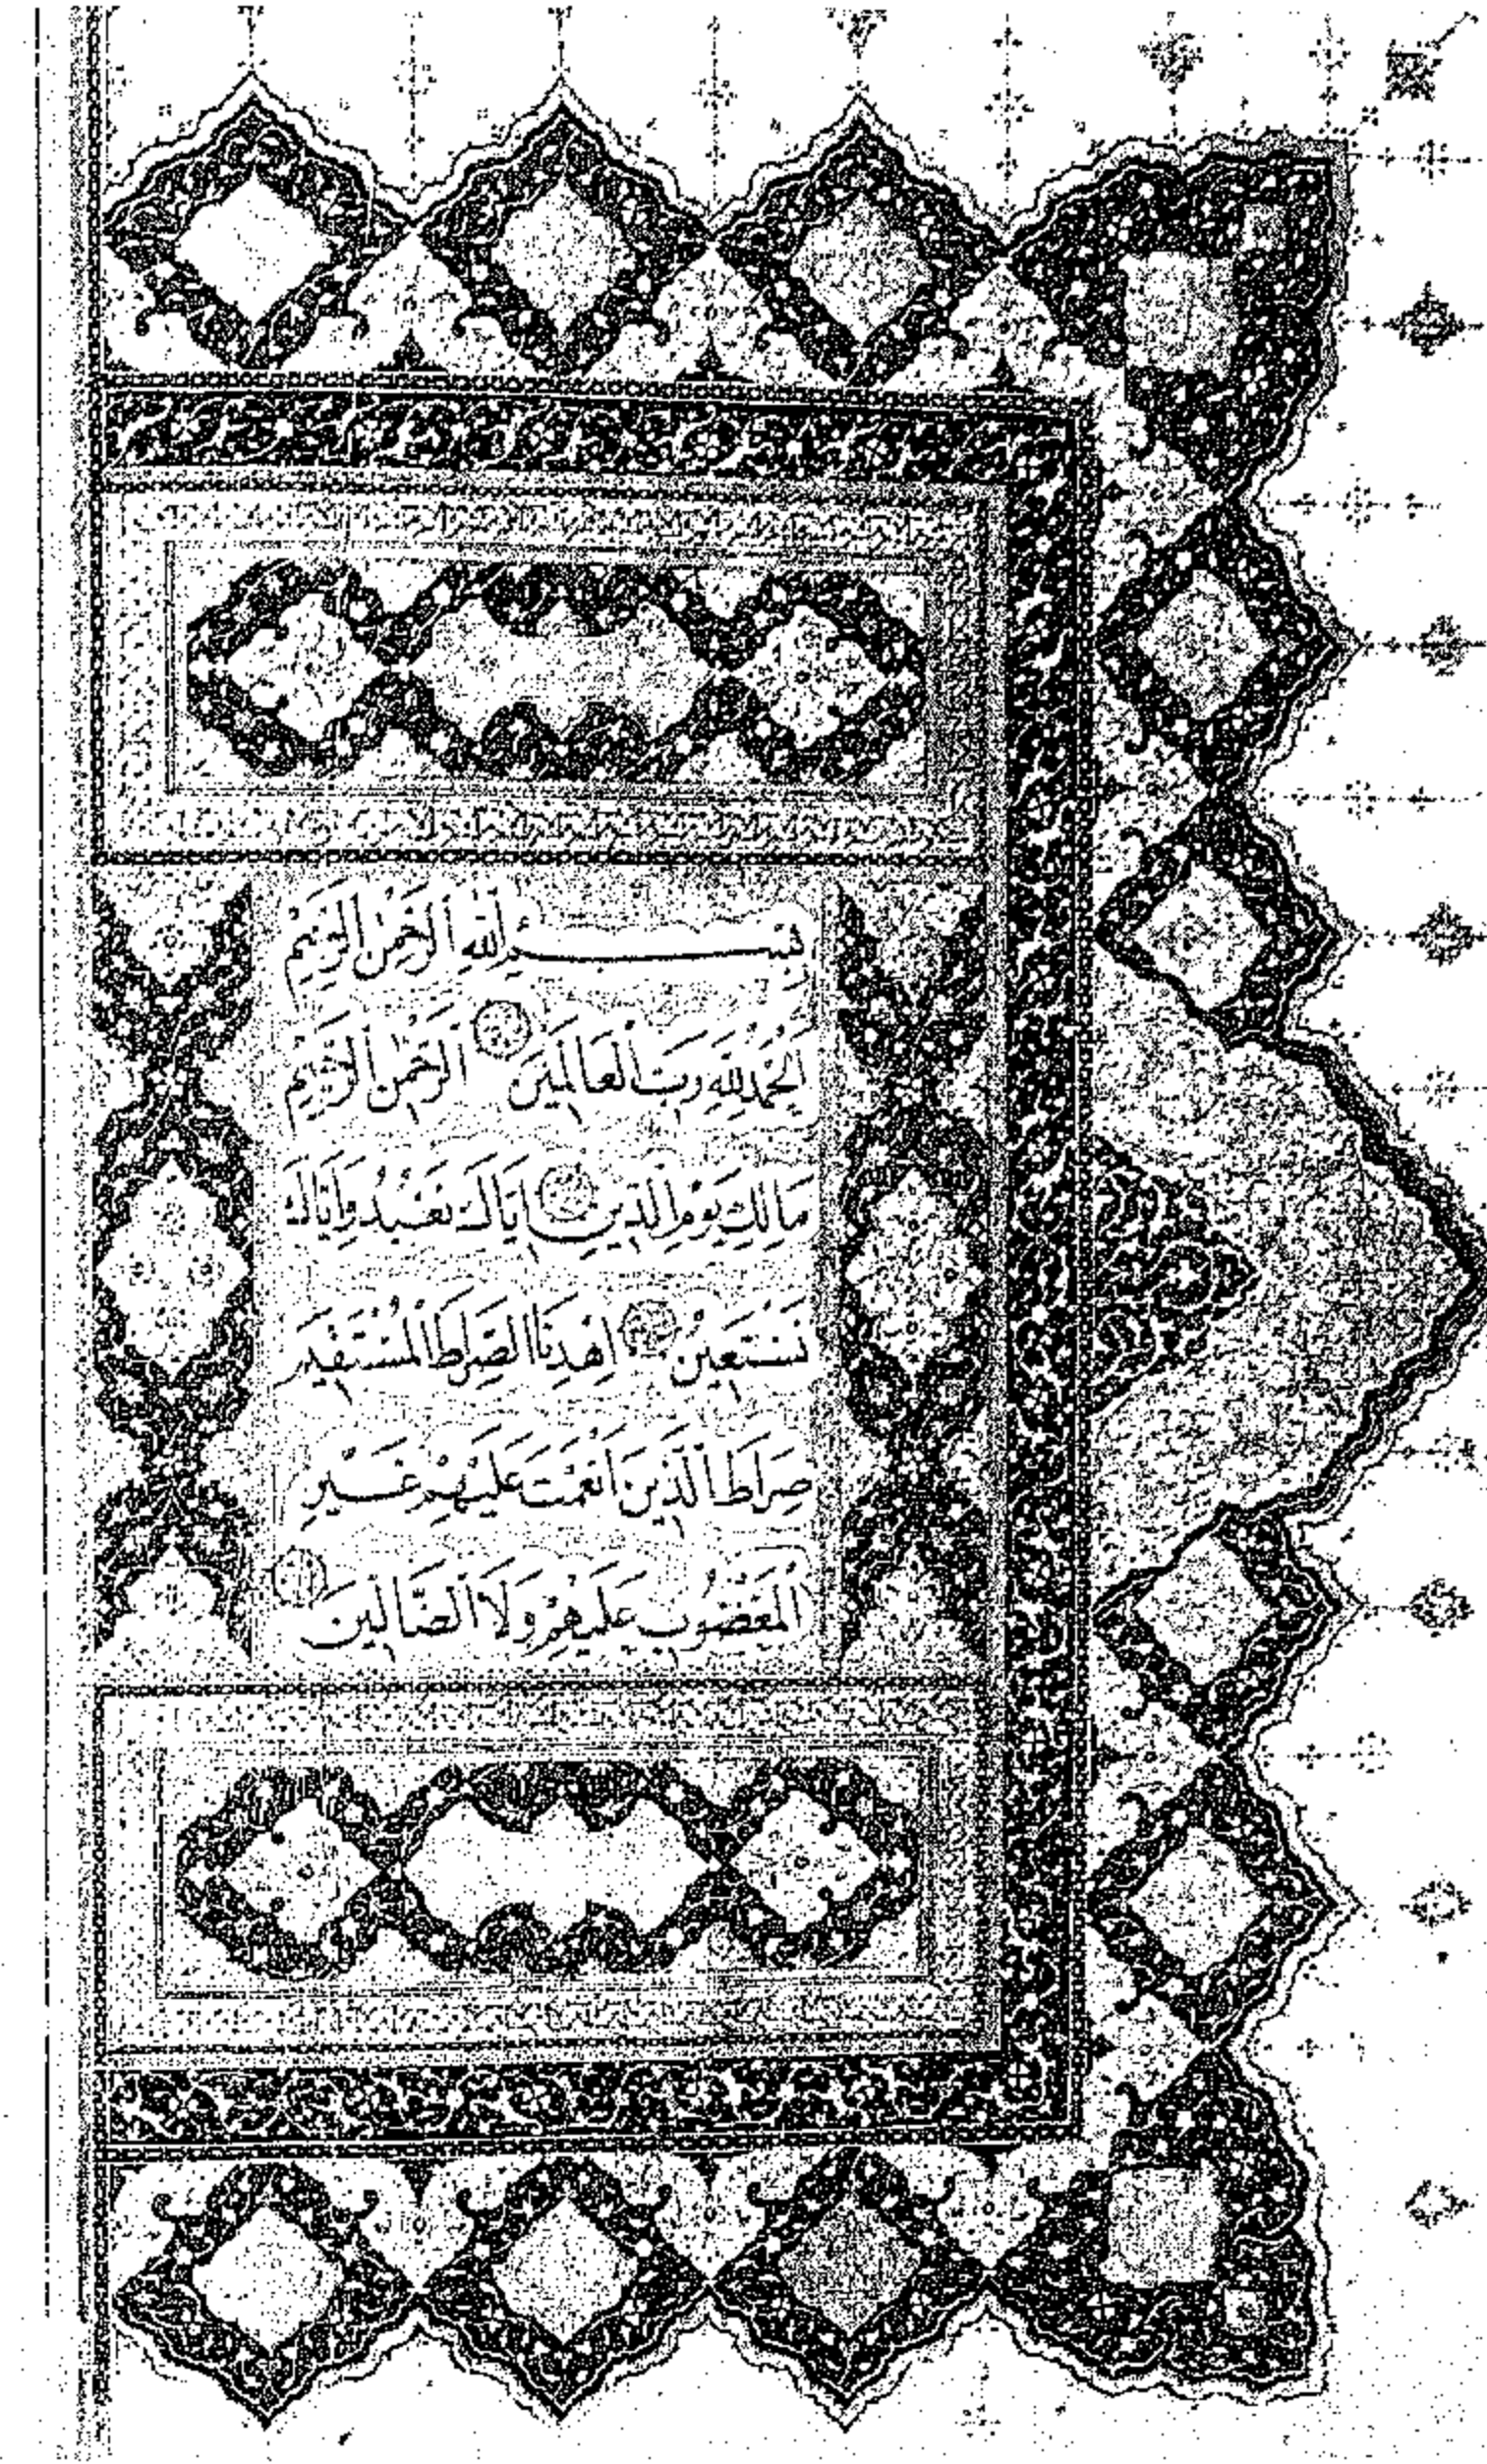 بِسْمِ اللَّهِ الرَّحْمَٰنِ الرَّحِيمِ
اَلْحَمْدُ لِلَّهِ رَبِّ الْعَالَمِينَ الرَّحْمَٰنِ الرَّحِيمِ
مَالِكِ يَوْمِ الدِّينِ اِيَّاكَ نَعْبُدُ وَاِيَّاكَ
نَسْتَعِينُ اِهْدِنَا الصِّرَاطَ الْمُسْتَقِيمَ
صِرَاطَ الَّذِينَ اَنْعَمْتَ عَلَيْهِمْ غَيْرِ
الْمَغْضُوبِ عَلَيْهِمْ وَلَا الضَّالِّينَ